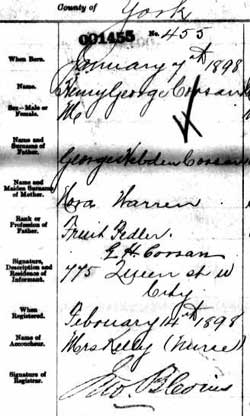 County of York
001455 No. 455
When Born. January 7th 1898
Name. Henry George Coosan
Sex—Male or Female. M
Name and Surname of Father. George Hebden Coosan
Name and Maiden Surname of Mother. Nora Warren
Rank or Profession of Father. Fruit Pedler
Signature, Description and Residence of Informant. G. H. Coosan
775 Queen st W
City
When Registered. February 14th 1898
Name of Accoucheur. Mrs Kelly (Nurse)
Signature of Registrar.